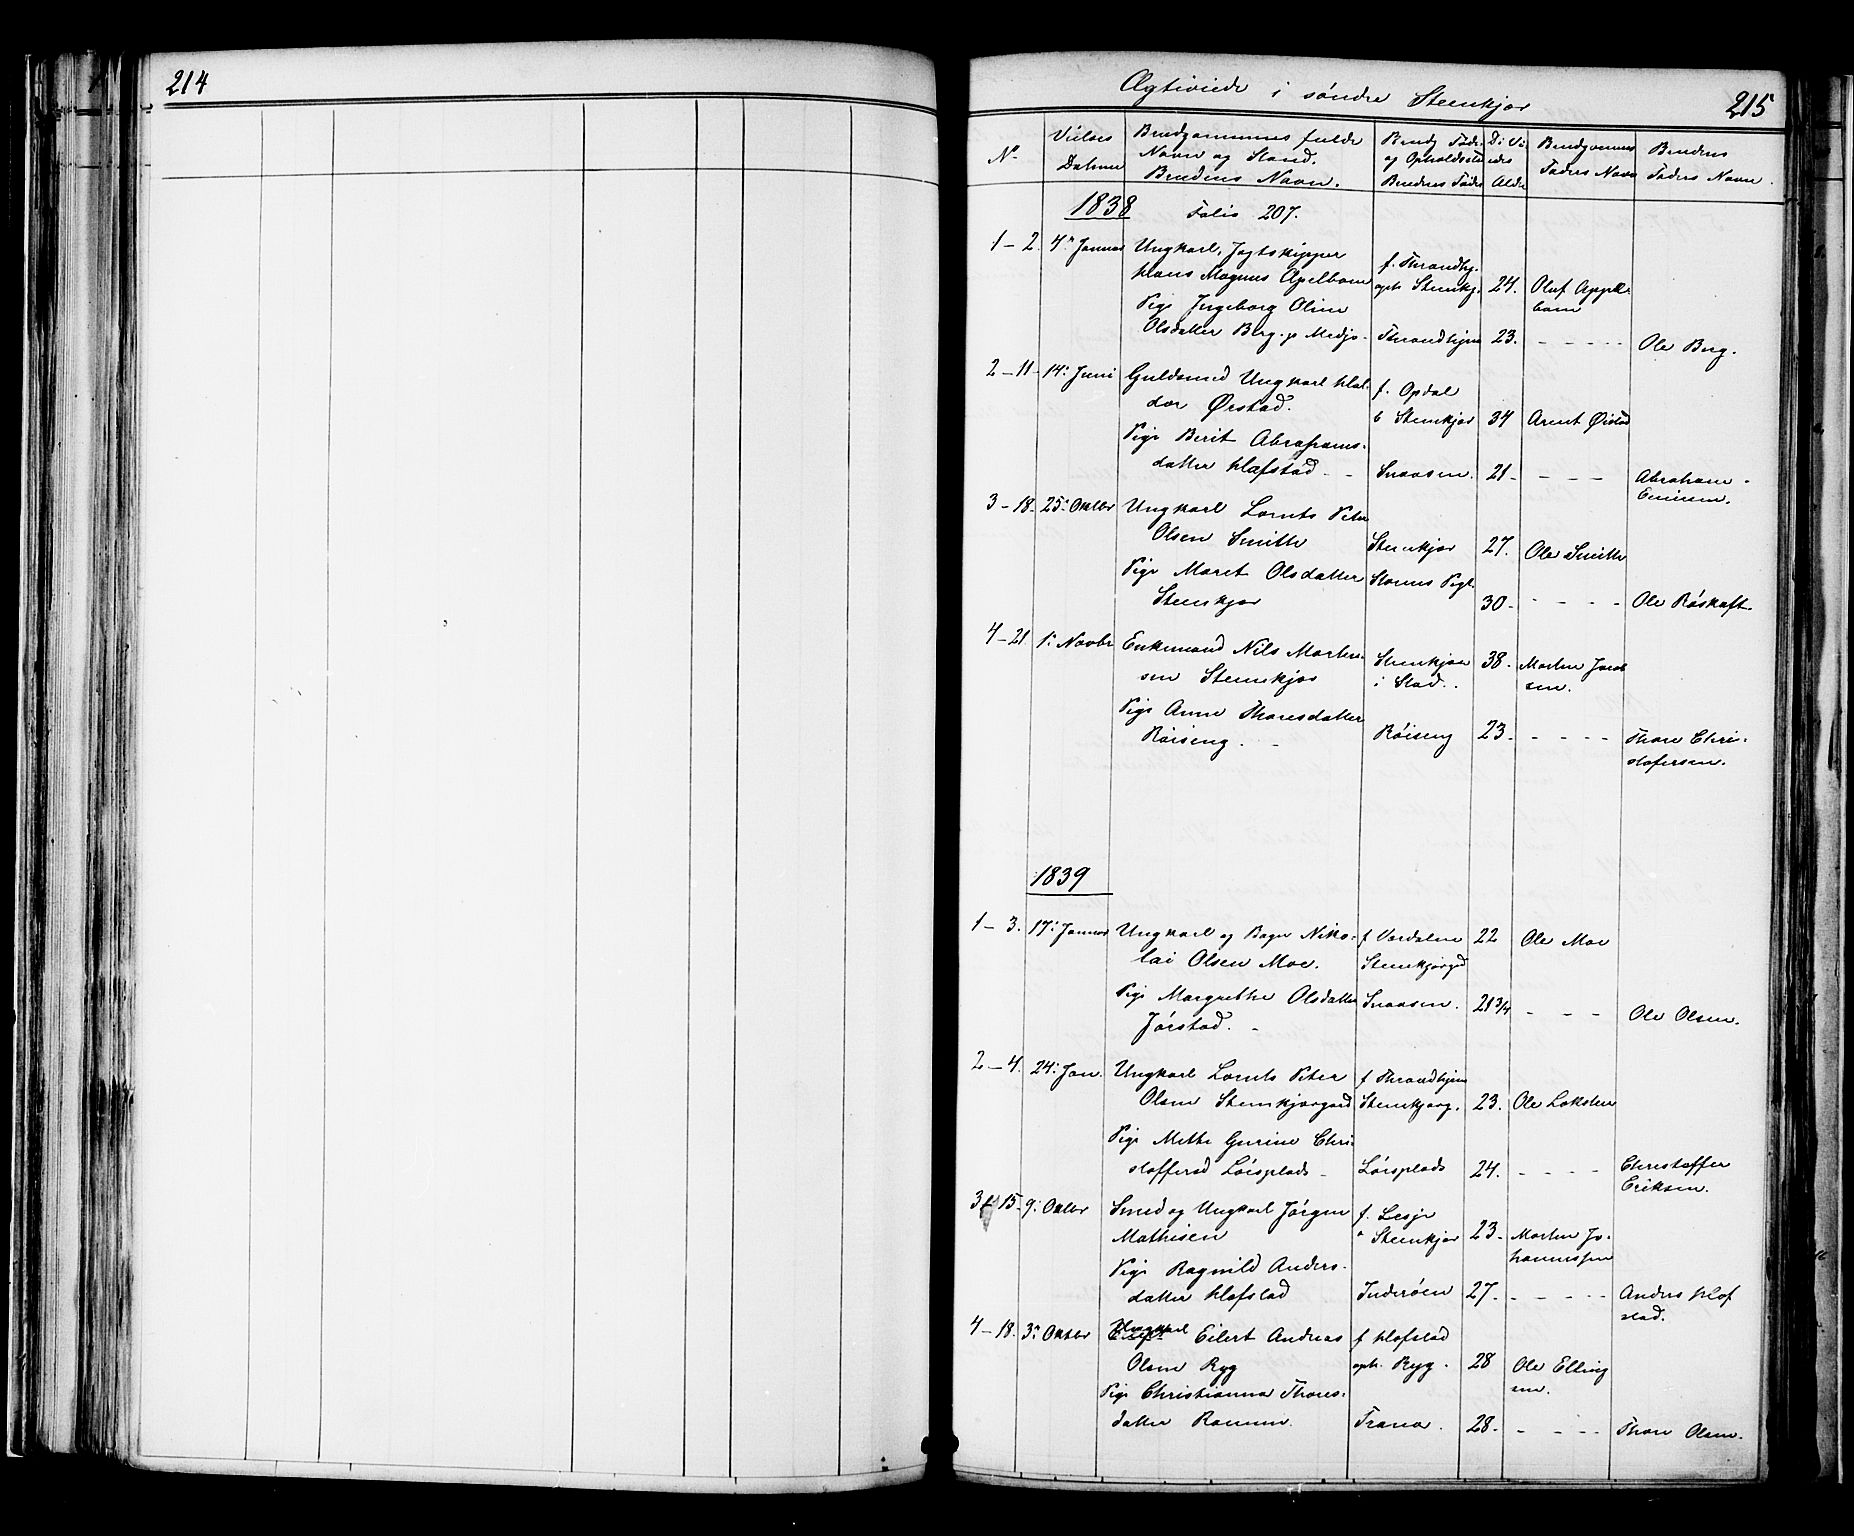 214
Ægteviede i søndre Steenkjær
215
No
Vielses
Datum
Brudgommens fulde
Navn og Stand.
Brudens Navn.
Brudg Føde
og Opholdsste
Brudens Føde
De Vi
edes
Alder
Brudgommens
Faders Navn
Brudens
Faders Navn.
1838
Folio 207.
1 - 2. 4de Januar Ungkarl, Jagtskipper
Hans Magnus Apelbom
f. Throndhj.
oph. Steenkj. 24. Oluf Appel-
bom
Pige Ingeborg Oline
Olsdatter Berg Throndhjem 23. - - - - - Ole Berg.
2 - 11 - 14: Juni Guldsmed Ungkarl Hal-
dor Ørstad.
f. Opdal
b Steenkjær 34 Arent Ørstad
Pige Berit Abrahams-
datter Hafstad - - Snaasen. 21 - - - - Abraham
3 - 18. 25: Oktbr Ungkarl Lornts Peter
Olsen Smith Steenkjær 27. Ole Smith
Pige Maret Olsdatter
Steenkjær 30 - - - - - Ole Røskaft.
4 - 21. 1: Novbr Enkemand Nils Morten-
sen Steenkjær Steenkjær
i Stad. 38. Morten Jacob
sen.
Pige Anne Thoresdatter
Røiseng. - Røiseng 23. - - - - Thore Chri-
stofersen.
1839
1 - 3. 17: Januar Ungkarl og Bager Niko-
lai Olsen Moe. f Værdalen
Steenkjærgrd 22 Ole Moe
Pige Margrethe Olsdatter
Jørstad. - Snaasen. 21 3/4 - - - Ole Olsen.
2 - 4. 24: Jan. Ungkarl Lornts Peter
Olsen Steenkjærgaard f Throndhjem
Steenkjærg. 23. Ole Loksten
Pige Mette Gurine Chri-
stoffersd Løisplads - Løisplads 24. - - - - Christoffer
Eriksen.
3 15 - 9: Oktbr Smed og Ungkarl Jørgen
Mathisen f. Lesje
Steenkjær 23. Morten Jo-
hannessen
Pige Ragnild Anders-
datter Hafstad Inderøen 27. - - - - - Anders Haf
stad.
4 - 18. 3: Oktbr Ungkarl Eilert Andreas
Olsen Ryg f Hafstad
oph. Ryg. 28 Ole Elling
sen.
Pige Christianna Thores-
datter Trana. 28. - - - - Thore Olsen.